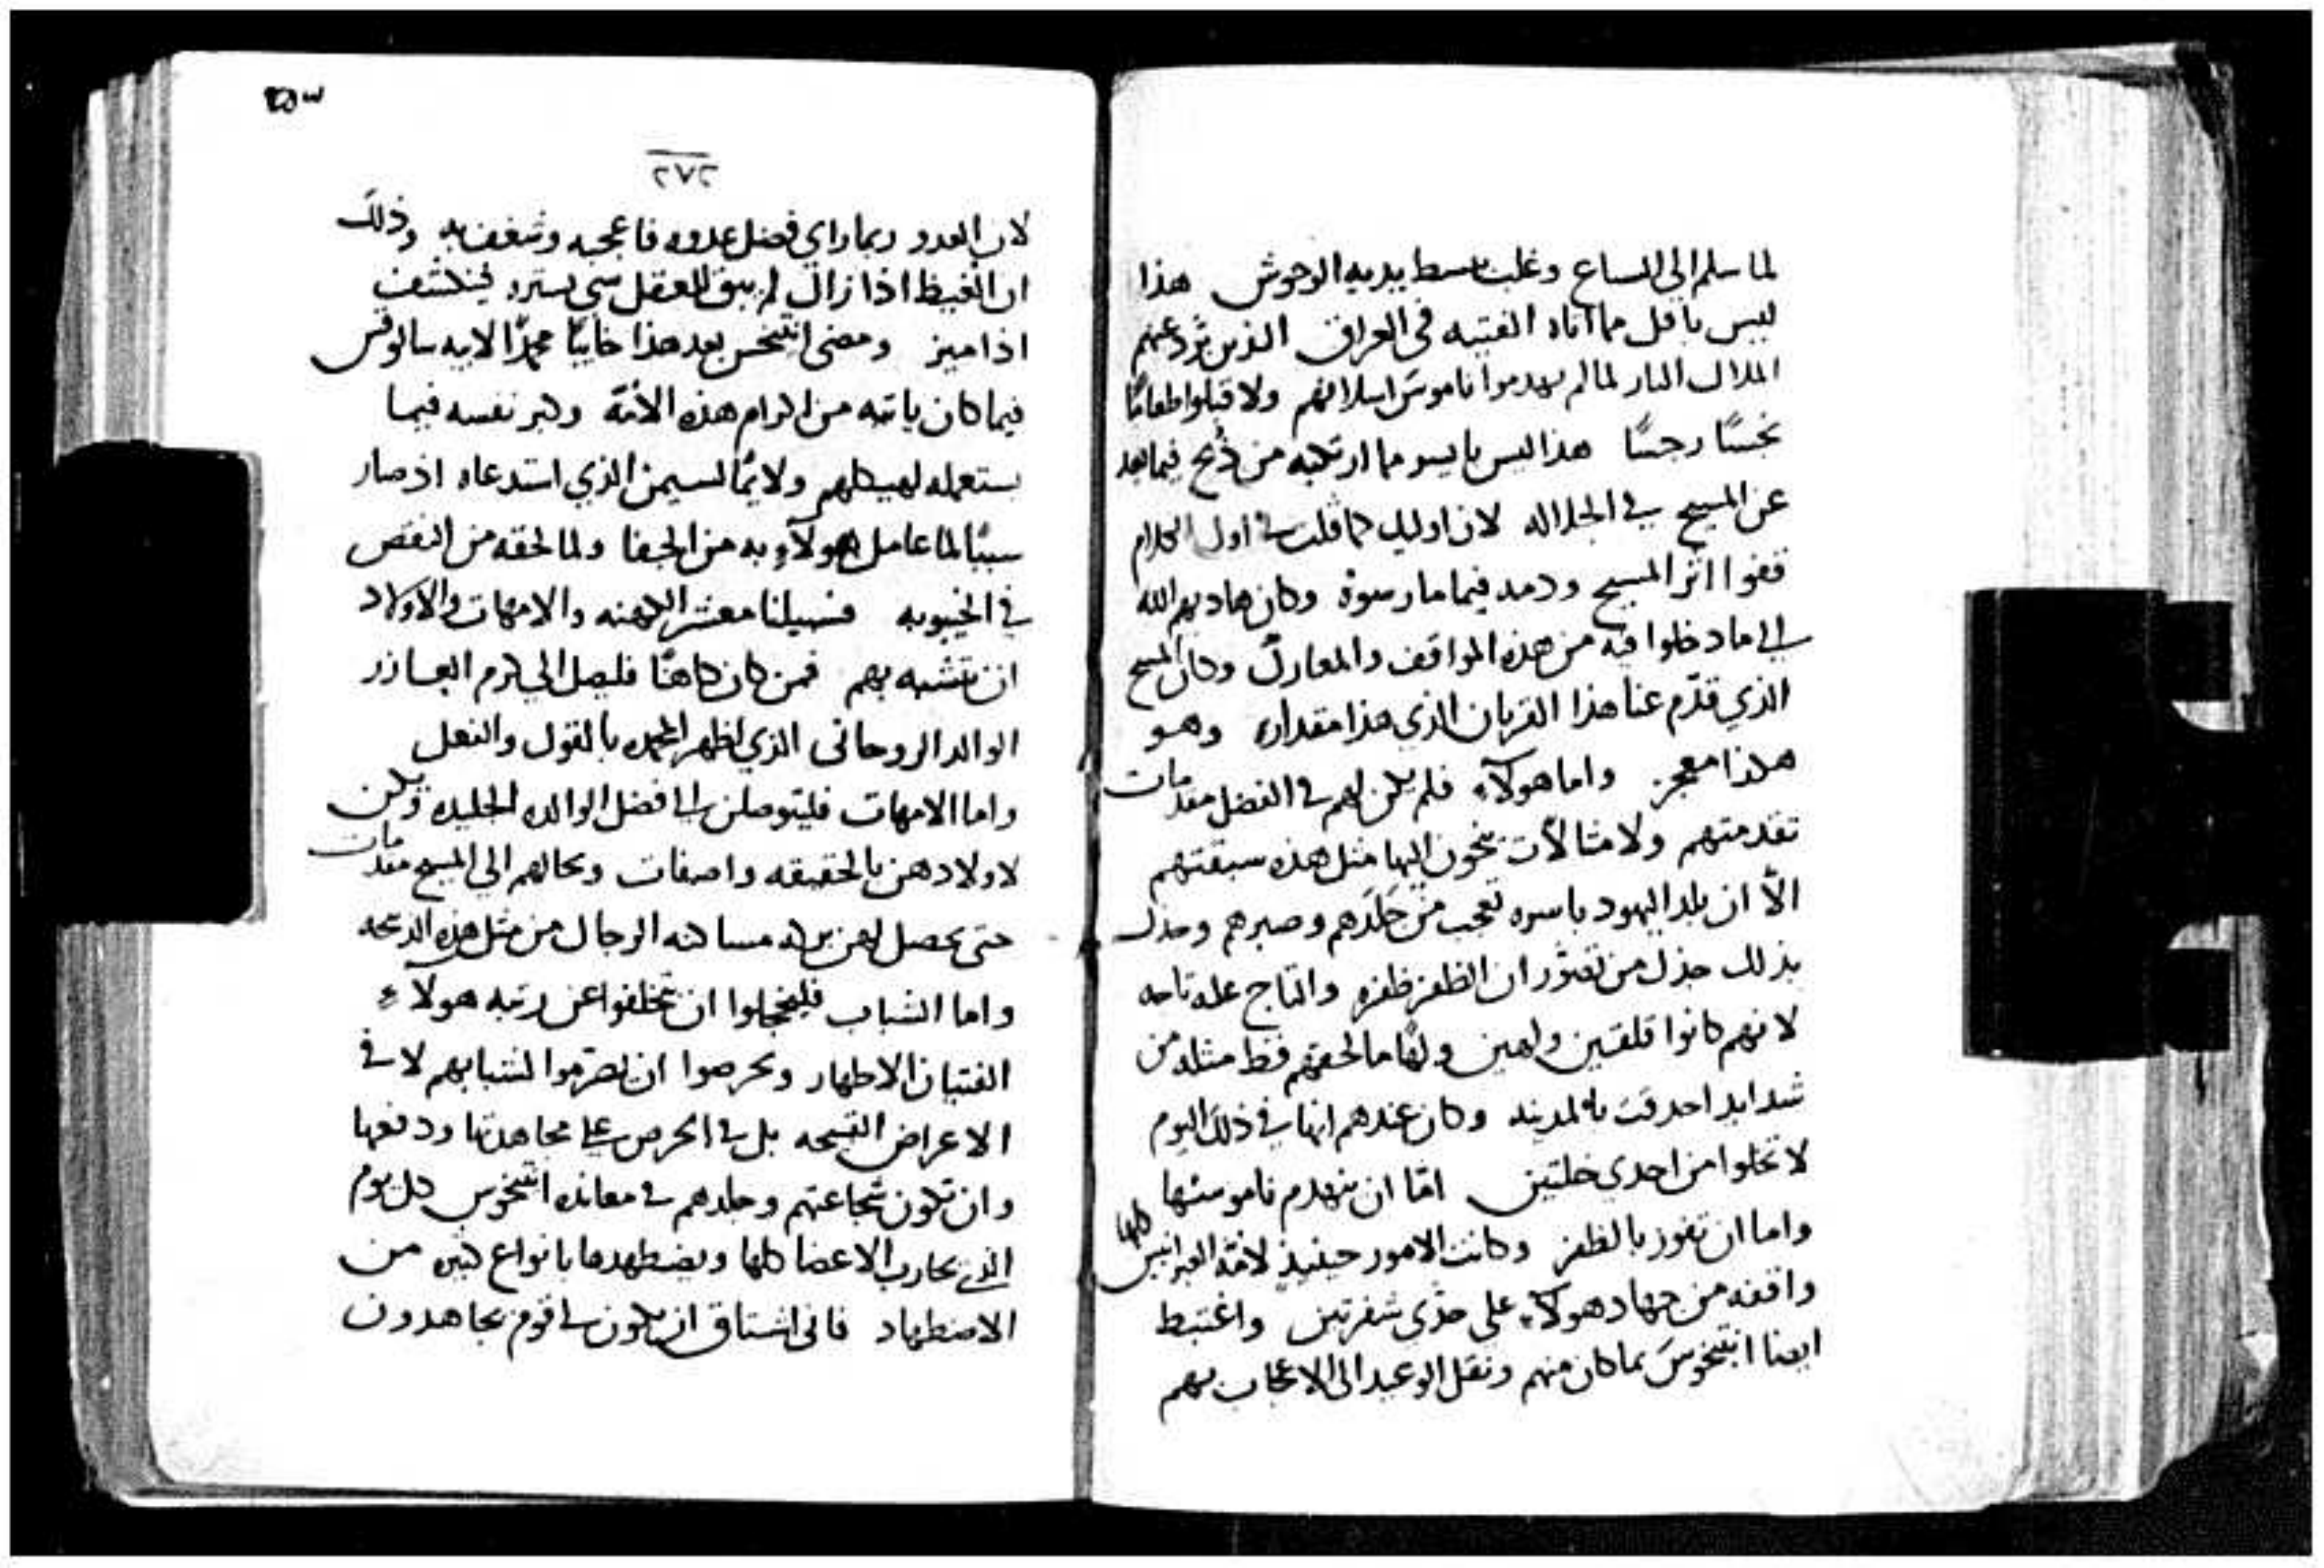 لما سلم الي السباع وغلب ببسط يديه الوحوش هذا
ليس باقل مما اتاه الفتيه في العراق الذين برد عنهم
الملاك النار لما لم يهدموا ناموس اسلافهم ولا قبلوا طعامًا
نجسًا رجسًا هذا ليس بايسر مما ارتكبه من ذُبح فيما بعد
عن المسيح في الجلاله لان اوليك كما قلت في اول الكلام
قفوا اثر المسيح ودمه فيما مارسوه وكان هاديهم الله
الي ما دخلوا فيه من هذه المواقف والمعارك وكان المسيح
الذي قدّم عنا هذا القربان الذي هذا مقداره وهو
هكذا معجز واما هولآء فلم يكن لهم في الفضل مقدمات
تقدمتهم ولا مثالات ينحون اليها مثل هذه سبقتهم
الّا ان بلد اليهود باسره تعجب من جَلَدهم وصبرهم وجذل
بذلك جذل من تصوّر ان الظفر ظفره والتاج عليه تاجه
لانهم كانوا قلقين ولهين ولقا ما لحقهم قط مثله من
شدايد احدقت بالمدينه وكان عندهم انها في ذلك اليوم
لا تخلوا من احدي خلتين امّا ان ينهدم ناموسها
واما ان تفوز بالظفر وكانت الامور حينيذٍ لامّة العبرانيين
واقفه من جهاد هولآء علي حدّي شفرتين واغتبط
ايضا انتيخوس بما كان منهم ونقل الوعيد الي الاعجاب بهم
٢٧٢
لان العدو ربما راي فضل عدوه فاعجبه وشغف به وذلك
ان الغيظ اذا زال لم يبق للعقل شي يستره فينكشف
اذا ميز ومضي انتيخس بعد هذا خايبًا محمدًا لابيه سالوقس
فيما كان ياتيه من اكرام هذه الامّة وكبر نفسه فيما
يستعمله لهيكلهم ولايمًا لسيمن الذي استدعاه اذ صار
سببًا لما عامل هولآء به من الجفا ولما لحقه من النقص
في الخيبوبه فسبيلنا معشر الكهنه والامهات والاولاد
ان نتشبه بهم فمن كان كاهنًا فليصل الي كرم العازر
الوالد الروحاني الذي اظهر المجد بالقول والفعل
واما الامهات فليتوصلن الي فضل الوالده الجليله ويكن
لاولادهن بالحقيقه واصفات وبحالهم الي المسيح مقدمات
حتي يحصل لهن بركه مساكنه الرجال من مثل هذه الذبيحه
واما الشباب فليخجلوا ان تخلفوا عن رتبه هولآء
الفتيان الاطهار ويحرصوا ان يصرموا لشبابهم لا في
الاعراض القبيحه بل في الحرص علي مجاهدتها ودفعها
وان تكون شجاعتهم وجلدهم في معانده انتيخوس كل يوم
الذي يحارب الاعضا كلها ويضطهدها بانواع كثيره من
الاضطهاد فاني اشتاق ان يكون لي قوم يجاهدون